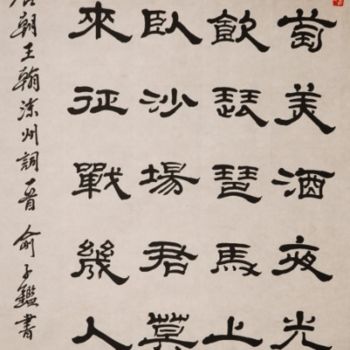 萄美酒夜光
飲琵琶馬上
臥沙場君莫
來征戰幾人
朝王翰涼州詞一首 俞子鑑書